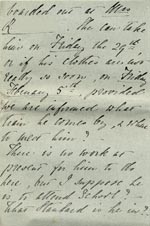 boarded out at Mrs
R — She can take
him on Friday the 29th
or if his clothes are not
ready so soon, on Friday
February 5th, provided
we are informed what
train he comes by, &
to meet him?
There is no work at
present for him to do
here, but I suppose he
is to attend School?
What standard is he in?